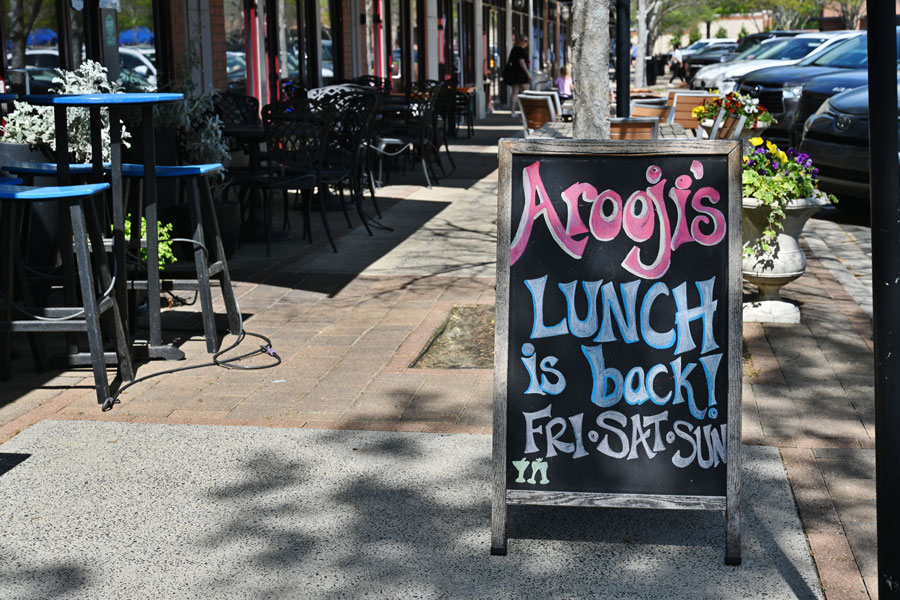 Arooji's
LUNCH
is back!
FRI•SAT•SUN